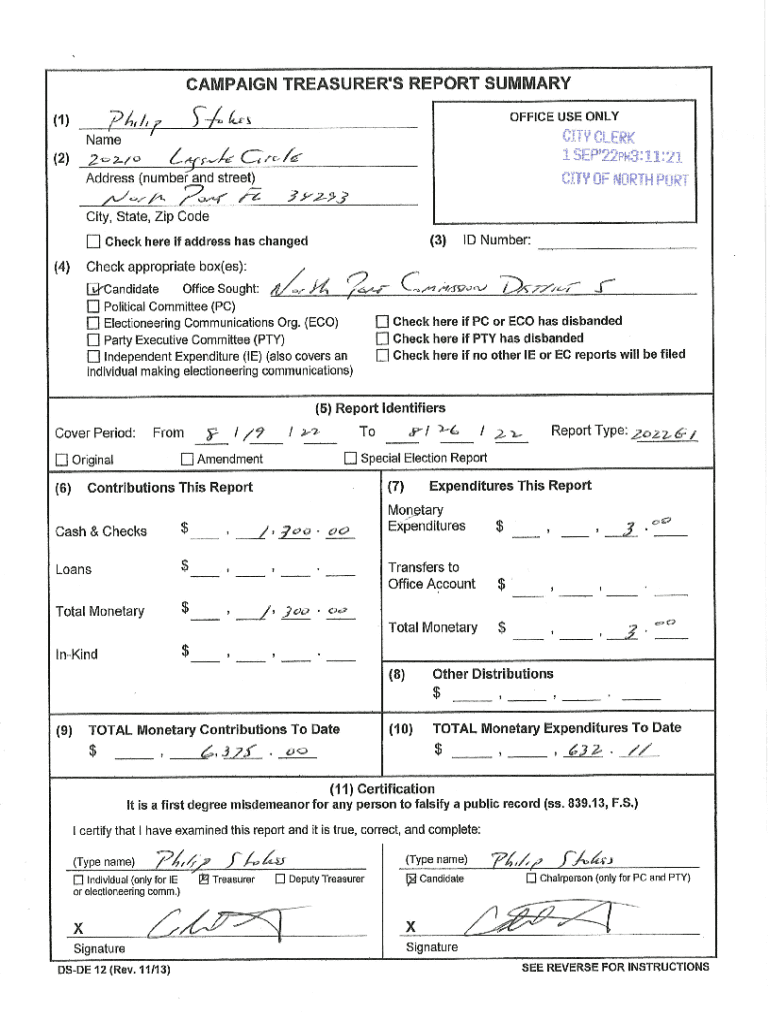 CAMPAIGN TREASURER'S REPORT SUMMARY
(1) Philip Stokes
Name
OFFICE USE ONLY
CITY CLERK
1 SEP'22PM3:11:21
CITY OF NORTH PORT
(2) 20210 Circle
Address (number and street)
North Port FL 34293
City, State, Zip Code
☐ Check here if address has changed
(3) ID Number:
(4) Check appropriate box(es):
☑ Candidate Office Sought: North Port Commission District 5
☐ Political Committee (PC)
☐ Electioneering Communications Org. (ECO) ☐ Check here if PC or ECO has disbanded
☐ Party Executive Committee (PTY) ☐ Check here if PTY has disbanded
☐ Independent Expenditure (IE) (also covers an ☐ Check here if no other IE or EC reports will be filed
individual making electioneering communications)
(5) Report Identifiers
Cover Period: From 8 / 19 / 22 To 8 / 26 / 22 Report Type: 2022G1
☐ Original ☐ Amendment ☐ Special Election Report
(6) Contributions This Report
(7) Expenditures This Report
Cash & Checks $ , 1,300.00
Monetary
Expenditures $ , , 3.00
Loans $ , , .
Transfers to
Office Account $ , , .
Total Monetary $ , 1,300.00
Total Monetary $ , , 3.00
In-Kind $ , , .
(8) Other Distributions
$ , , .
(9) TOTAL Monetary Contributions To Date
$ , 6,375.00
(10) TOTAL Monetary Expenditures To Date
$ , , 632.11
(11) Certification
It is a first degree misdemeanor for any person to falsify a public record (ss. 839.13, F.S.)
I certify that I have examined this report and it is true, correct, and complete:
(Type name) Philip Stokes
☐ Individual (only for IE ☒ Treasurer ☐ Deputy Treasurer
or electioneering comm.)
X
Signature
(Type name) Philip Stokes
☒ Candidate ☐ Chairperson (only for PC and PTY)
X
Signature
DS-DE 12 (Rev. 11/13) SEE REVERSE FOR INSTRUCTIONS